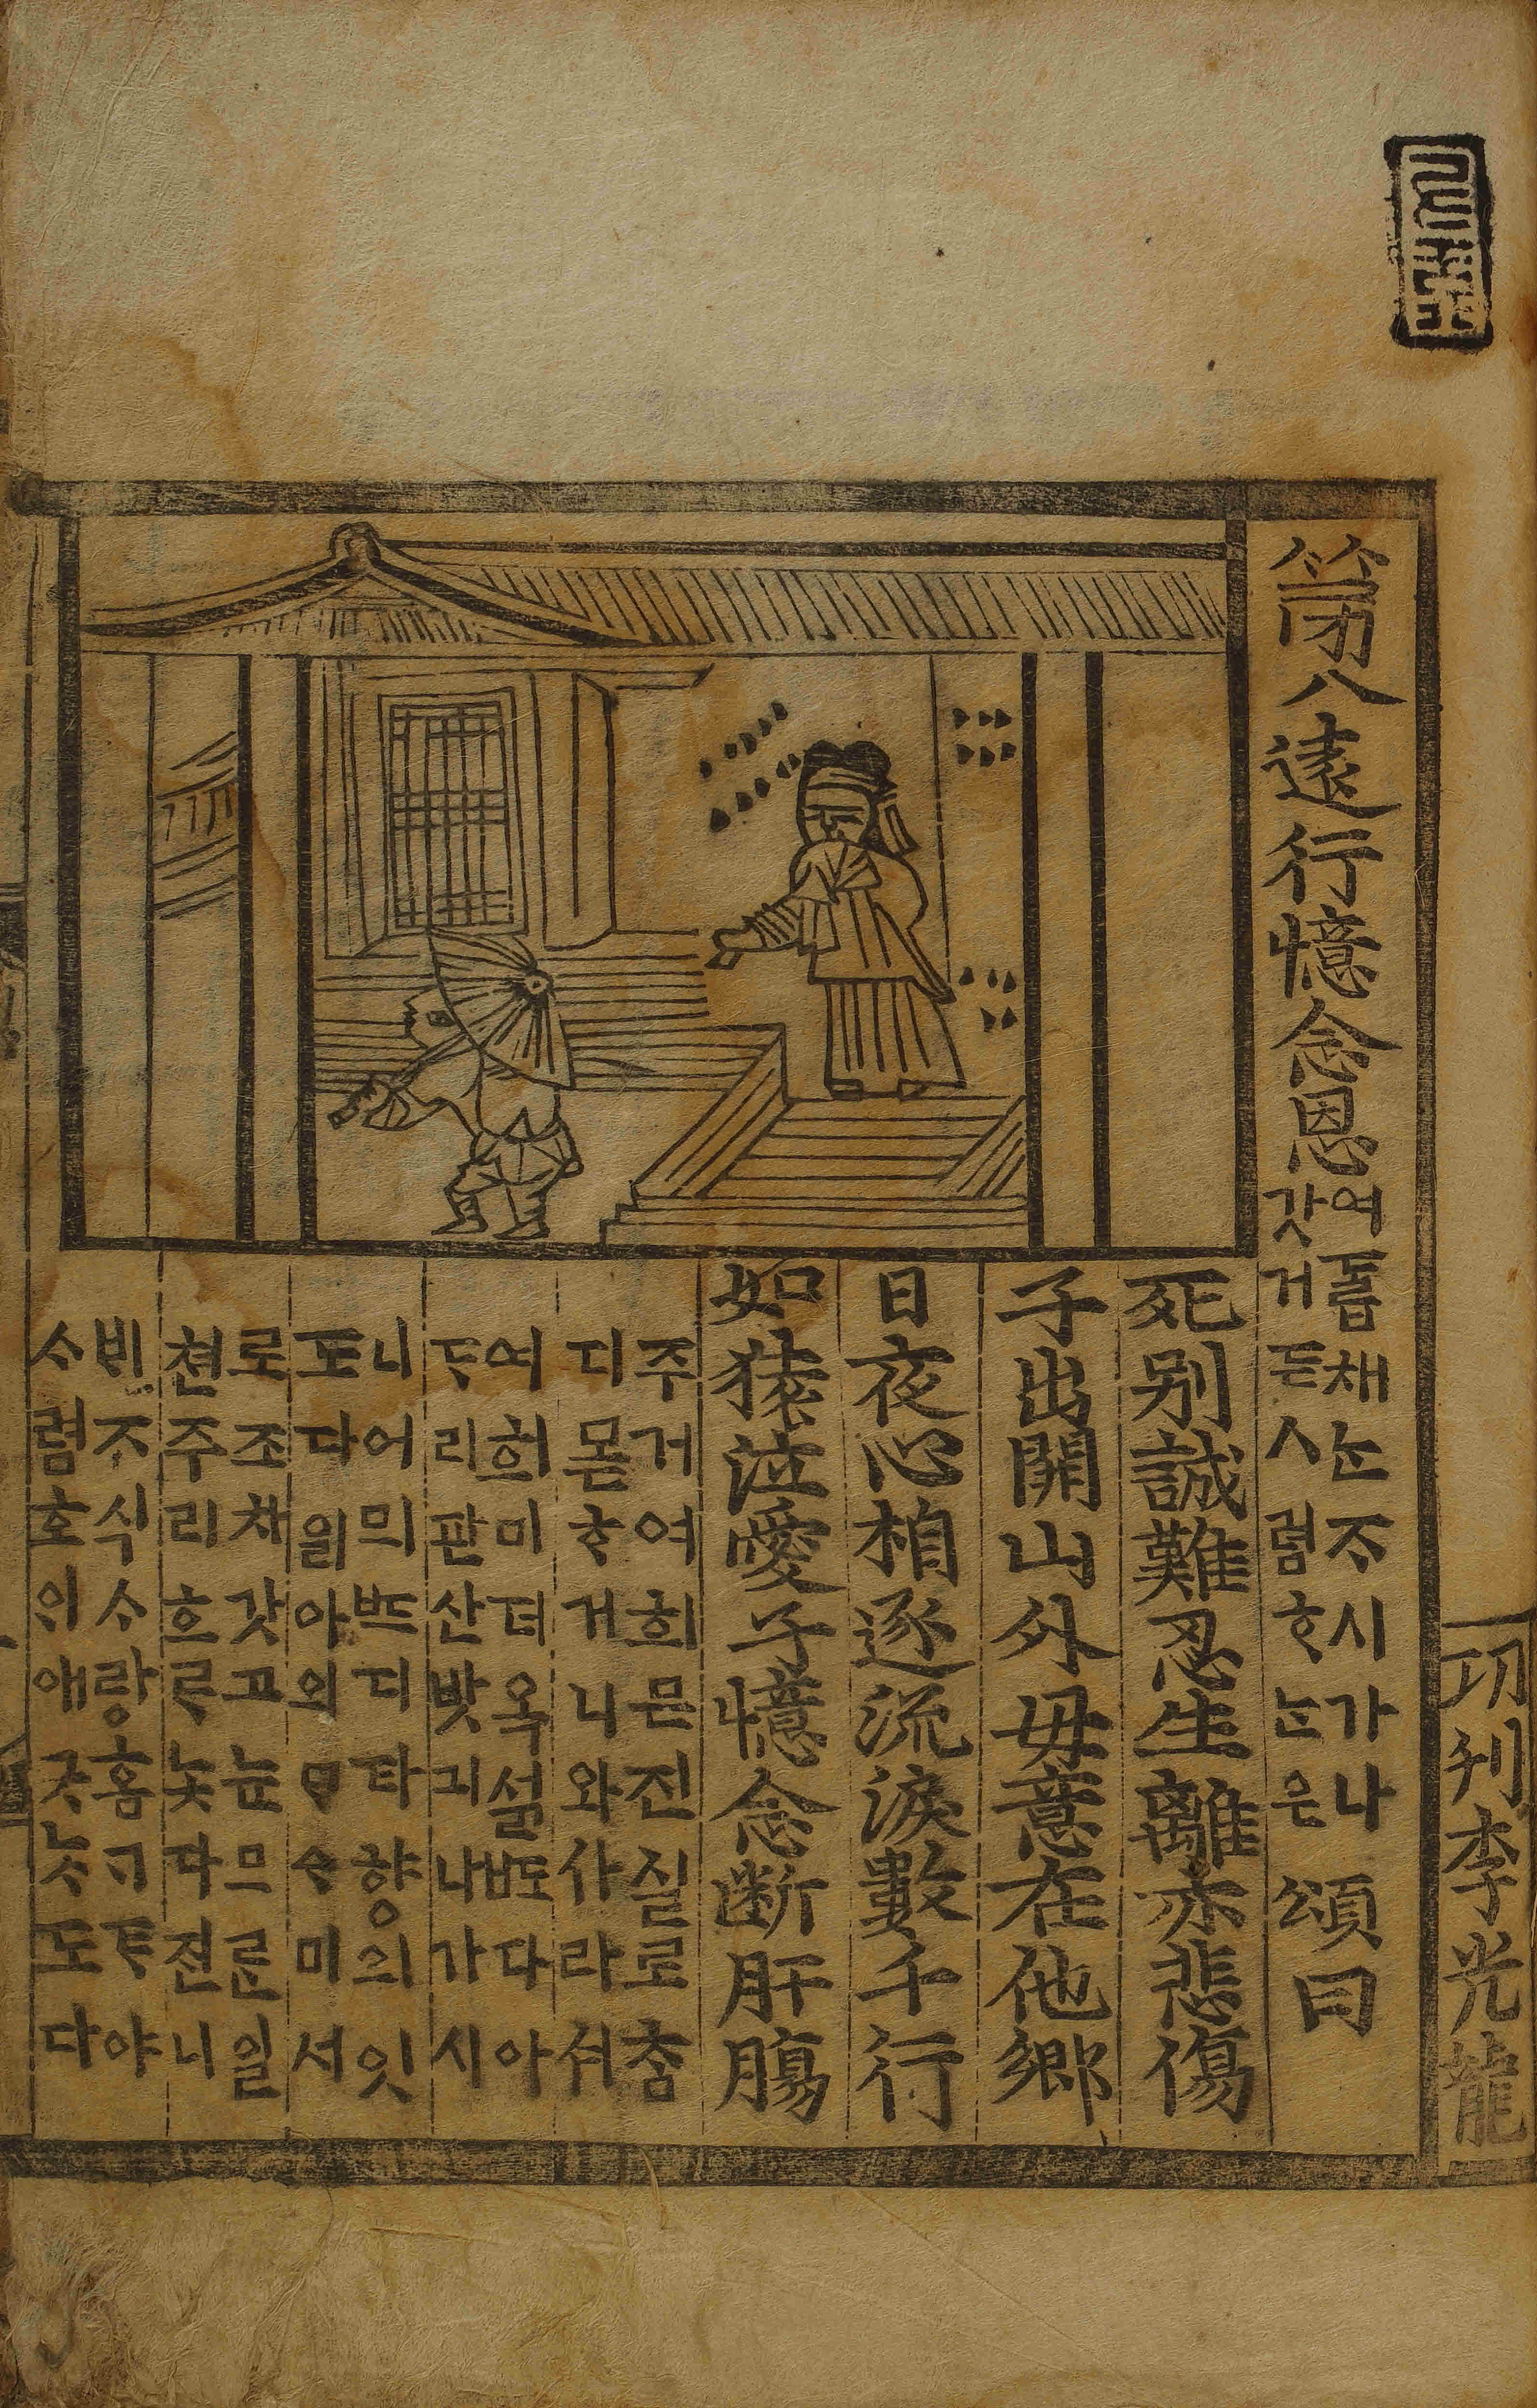 功刋李光龍
第八遠行憶念恩
여듧채ᄂᆞᆫᄌᆞ시가나
갓거든ᄉᆞ럼ᄒᆞᄂᆞᆫ은
頌曰
死別誠難忍生離亦悲傷
子出關山外母意在他鄕
日夜心相逐流淚數千行
如猿泣愛子憶念斷肝膓
주거여희믄진실로ᄎᆞᆷ
디몯ᄒᆞ거니와사라셔
여희미뎌옥셟도다아
ᄃᆞ리관산밧긔나가시
니어믜ᄠᅳ디타향의잇
도다읤아외ᄆᆞᄉᆞ미서
로조차갓고눈므른일
쳔주리흐르놋다젼니
빈ᄌᆞ식ᄉᆞ랑홈ᄀᆞᄐᆞ야
ᄉᆞ럼호의애긋ᄂᆞᆺ도다